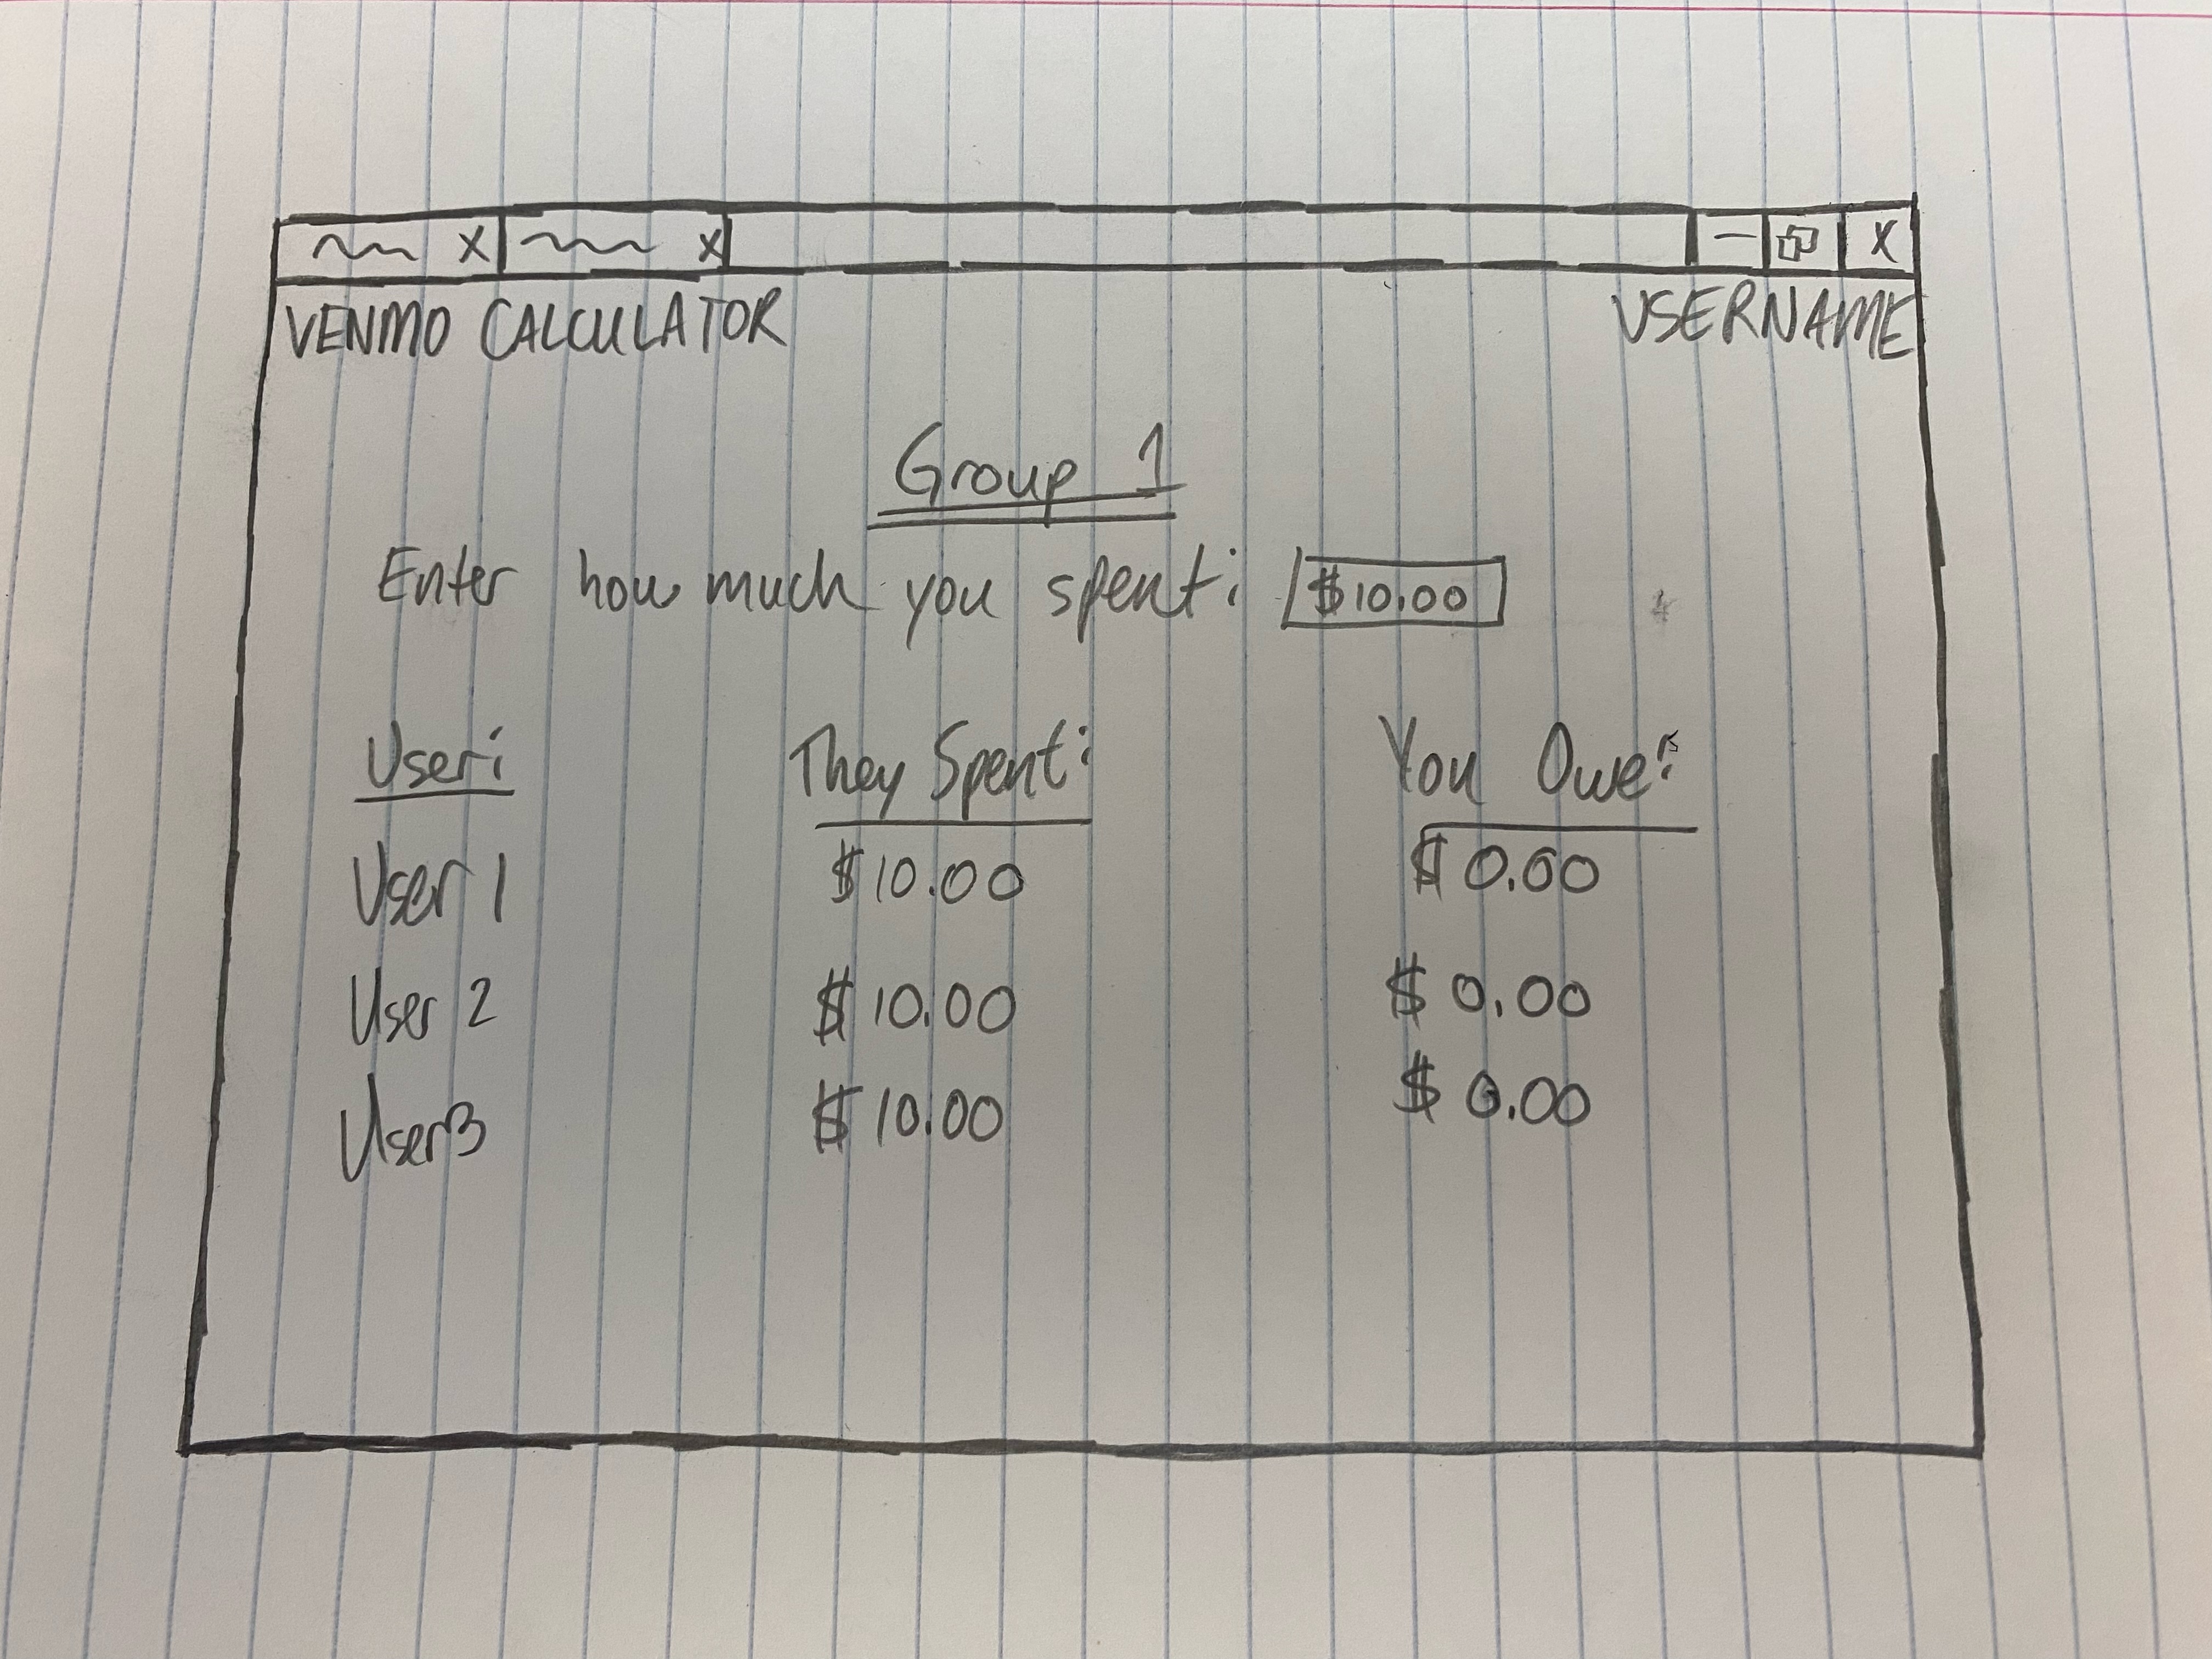 VENMO CALCULATOR USERNAME
Group 1
Enter how much you spent: $10.00
User: They Spent: You Owe:
User 1 $10.00 $0.00
User 2 $10.00 $0.00
User3 $10.00 $0.00